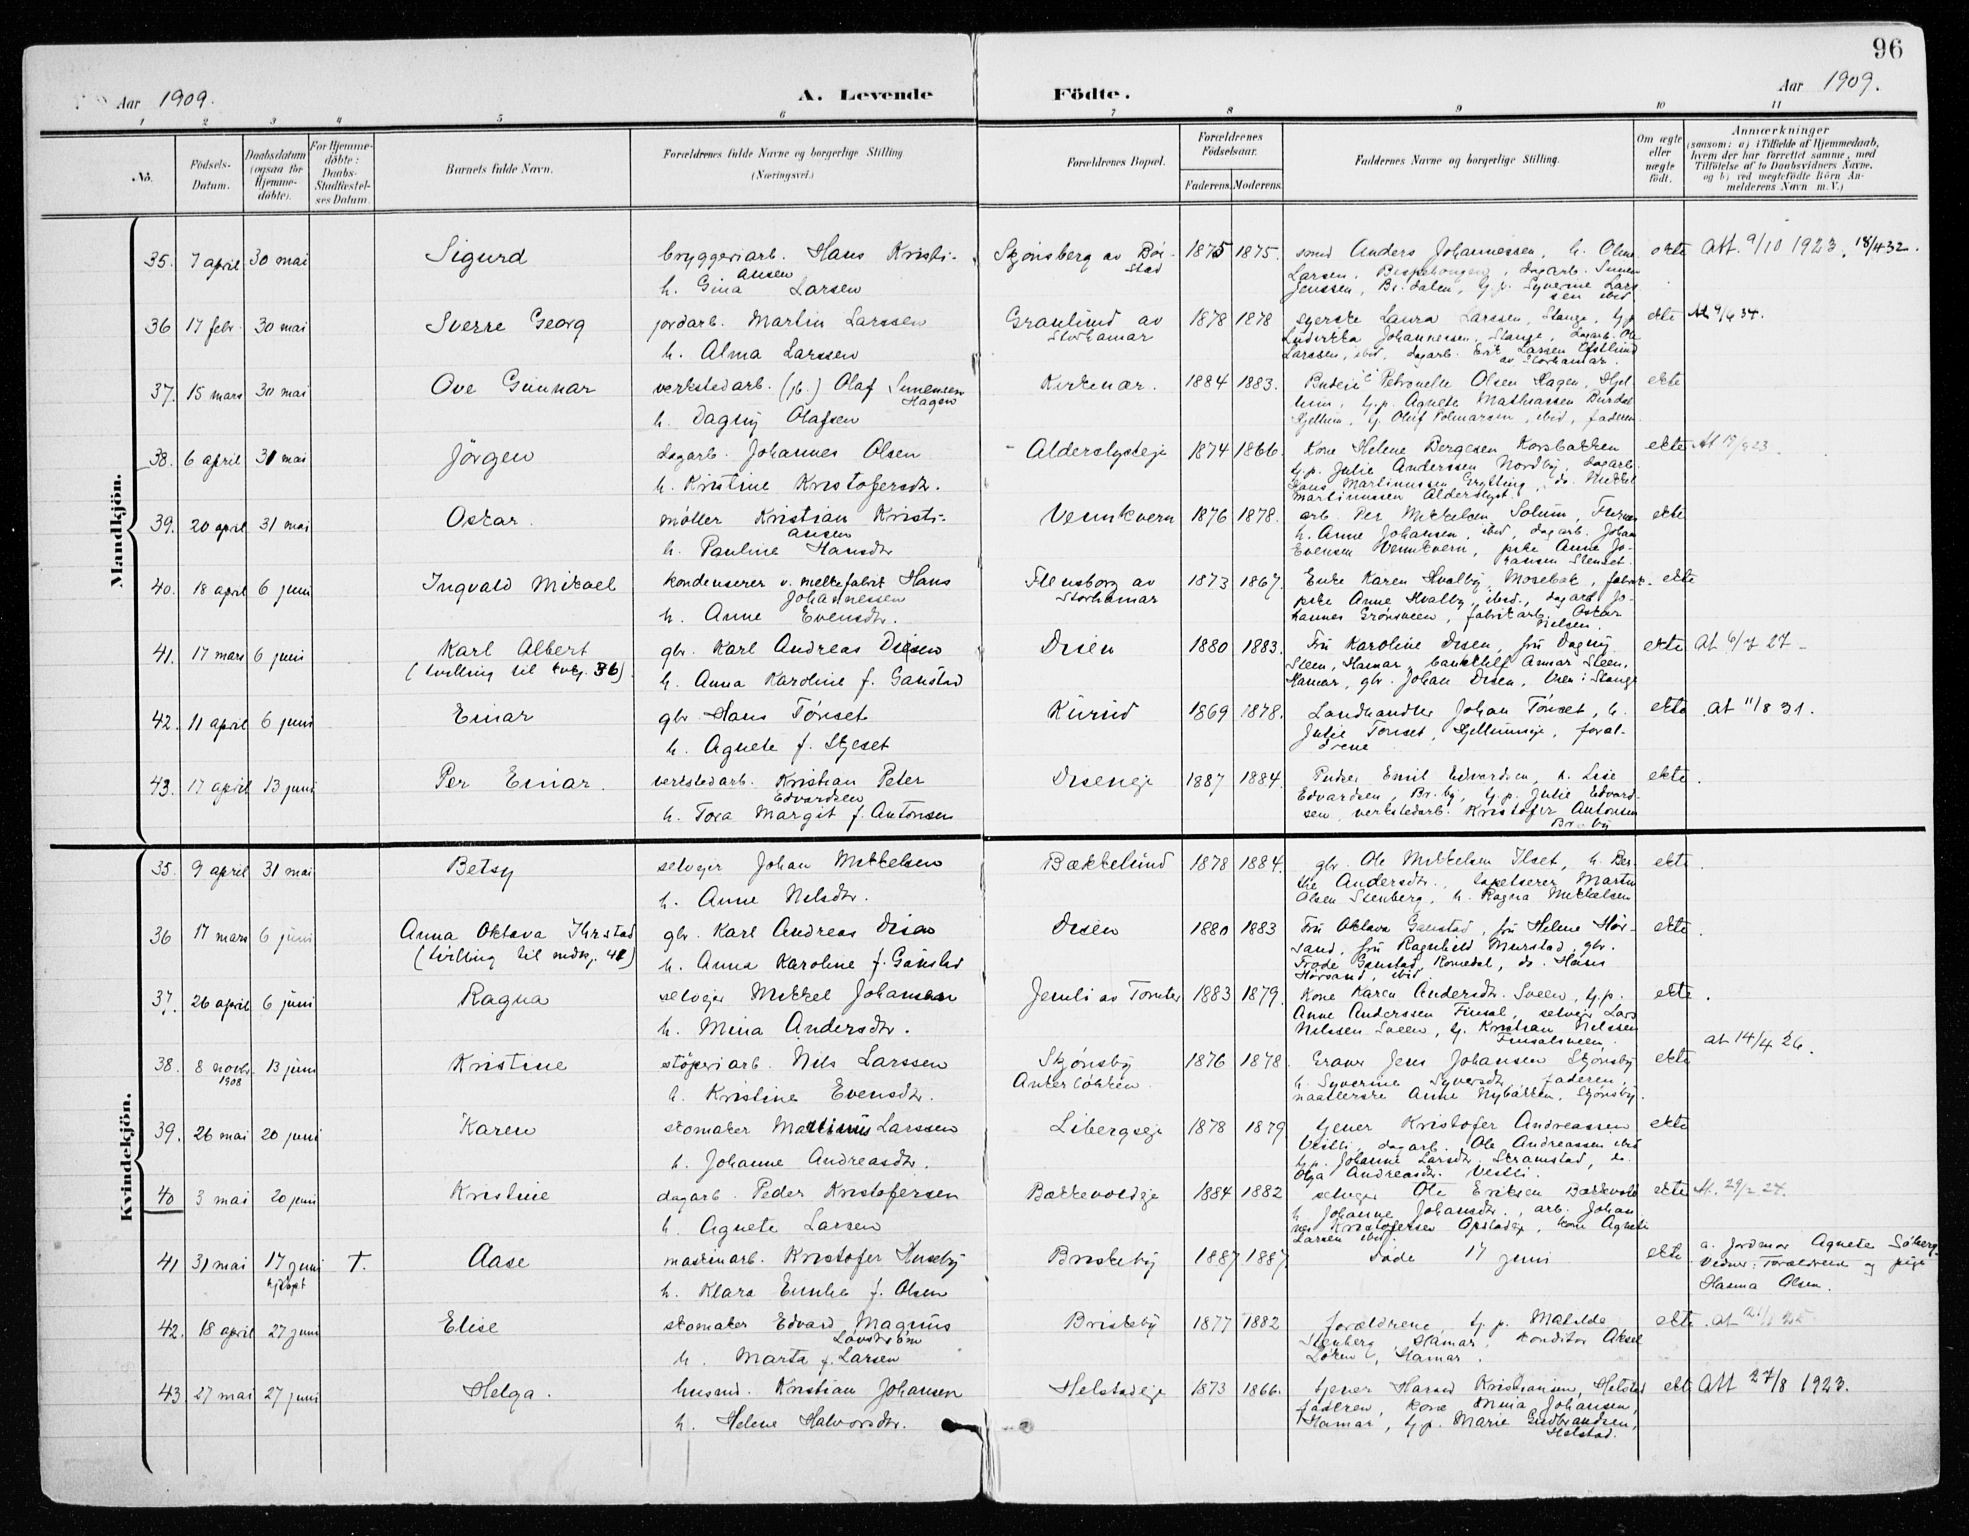 96
Aar 1909.
A. Levende
Födte.
Aar 1909.
1 2 3 4 5 6 7 8 9 10 11
No.
Födsels-Datum.
Daabsdatum (ogsaa for Hjemme-döbte).
For Hjemme-döbte: Daabs-Stadfæstel-ses Datum.
Barnets fulde Navn.
Forældrenes fulde Navne og borgerlige Stilling (Næringsvei.)
Forældrenes Bopæl.
Forældrenes Födselsaar.
Faderens. Moderens.
Faddernes Navne og borgerlige Stilling.
Om ægte eller uægte födt.
Anmærkninger
(saasom: a) i Tilfælde af Hjemmedaab, hvem der har forrettet samme, med Tilföielse af to Daabsvidners Navne, og b) ved uægtefödte Börn An-melderens Navn m. V.)
Mandkjön.
35. 7 april 30 mai Sigurd bryggeriarb. Hans Kristi-
ansen
h. Gina Larsen
Skjønsberg av Bør-
stad
1875 1875. smed Anders Johannessen, h. Oline
Larsen,
Jenssen, Br. dalen, tj.p. Syverine Lars
sen ibid
ekte Att. 9/10 1923, 18/4 32.
36 17 febr. 30 mai Sverre Georg jordarb. Martin Larssen
h. Alma Larssen
Granlund av
Storhamar
1878 1878 syerske Laura Larssen, Stange, tj.p.
Ludvikka Johannessen, Stange, dagarb. Ole
Larssen, ibid, dagarb. Erik Larsen Østlund
av Storhamar
ekte
37. 15 mars 30 mai Ove Gunnar verkstedarb. (jb.) Olaf Simensen
Hagen
h. Dagny Olafsen
Kirkenær. 1884 1883. Budeie Petronelle Olsen Hagen, Hjel-
lum, tj.p. Agnete Mathiassen
Hjellum, tj. Oluf ibid, faderen
ekte
38. 6 april 31 mai Jørgen dagarb. Johannes Olsen
h. Kristine Kristofersdtr.
Alderslysteje 1874 1866. Kone Helene Bergesen Korsbakken
tj.p. Julie Anderssen Nordby, dagarb.
Hans Martinussen Grytting, do. Mikkel
Martinussen Alderslyst.
ekte
39. 20 april 31 mai Oskar. møller Kristian Kristi-
ansen
h. Pauline Hansdtr
Vennkvern 1876 1878. arb. Per Mikkelsen Solum, Furnes
h. Anne Johansen, ibid, dagarb. Johan
Evensen Vennkvern, pike Anne Jo-
hansen Stenset.
ekte
40. 18 april 6 juni Ingvald Mikael kondenserer v. melkefabrik Hans
Johannessen
h. Anne Evensdtr.
Flensborg av
Storhamar
1873 1867. Enke Karen Hvalby, Mosebæk, fabrik-
pike Anne Hvalby, ibid., dagarb. Jo-
hannes Grønsveen, fabrikarb. Oskar
Nielsen.
ekte
41. 17 mars 6 juni Karl Albert
(tvilling til kvkj. 36)
gbr. Karl Andreas Disen
h. Anna Karoline f. Gaustad
Disen 1880 1883. Fru Karoline Disen, fru Dagny
Steen, Hamar, bankchef Annar Steen,
Hamar, gbr. Johan Disen, Uren i Stange
ekte At 6/7 27
42. 11 april 6 juni Einar gbr. Hans Tønset
h. Agnete f. Skjeset
Kurud 1869 1878. Landhandler Johan Tønset, h.
Julie Tønset, Hjellumseje, foræl-
drene
ekte At 11/8 31.
43. 17 april 13 juni Per Einar. verkstedarb. Kristian Peter
Edvardsen
h. Tora Margit f. Antonsen
Diseneje 1887 1884. Emil Edvardsen, h. Lise
Edvardsen, Br.by, tj.p. Julie Edvard-
sen, verkstedarb. Kristofer Antonsen
Br.by
ekte.
Kvindekjön.
35. 9 april 31 mai Betsy selveier Johan Mikkelsen
h. Anne Nilsdtr.
Bækkelund 1878 1884. gbr. Ole Mikkelsen Ilset, h. Ber-
the Andersdtr., tapetserer Martin
Olsen Stenberg, h. Ragna Mikkelsen
ekte.
36 17 mars 6 juni Anna Oktava
(tvilling til mdkj. 41)
gbr. Karl Andreas Disen
h. Anna Karoline f. Gaustad
Disen 1880 1883 Fru Oktava Gaustad, fru Helene Hør-
sand, fru Ragnhild Murstad, gbr.
Frode Gaustad, Romedal, do. Hans
Hørsand, ibid.
ekte.
37. 26 april 6 juni Ragna selveier Mikkel Johansen
h. Mina Andersdtr.
Jemli av Tomter 1883 1879. Kone Karen Andersdtr. Sveen, tj.p.
Anne Anderssen Finsal, selveier Lars
Nilssen Sveen, tj. Kristian Nilssen
Finsalsveen.
ekte.
38. 8 novbr. 13 juni
1908
Kristine støperiarb. Nils Larssen
h. Kristine Evensdtr.
Skjønsby
Ankerløkken.
1876 1878. Graver Jens Johansen Skjønsby
h. Syverine Syversdtr, faderen,
naatlerske Anne Nybakken, Skjønsby.
ekte at 14/4 26.
39. 26 mai 20 juni Karen skomaker Martinus Larssen
h. Johanne Andreasdtr.
Libergseje 1878 1879. tjener Kristofer Andreassen
Vestli, dagarb. Ole Andreassen ibid
tj.p. Johanne Larsdtr. Stramstad, do.
Olga Andreasdtr. Vestli.
ekte
40 3 mai 20 juni Kristine dagarb. Peder Kristofersen
h. Agnete Larsen
Bækkevoldeje 1884 1882 selveier Ole Eriksen Bækkevold
h. Johanne Johansdtr., arb. Johan
nes Kristofersen Opsaleje, kone Agnete
Larsen ibid.
ekte At. 29/2 24.
41 31 mai 17 juni T. Aase
hjdøpt
maskinarb. Kristofer Huseby
h. Klara Emilie f. Olsen
Briskeby 1887 1887. Døde 17 juni ekte a. jordmor Agnete Søberg.
Vidner: Forældrene og pige
Hanna Olsen.
42. 18 april 27 juni Elise skomaker Edvard Magnus
Løvstrøm
h. Marta f. Larsen
Briskeby 1877 1882 forældrene, tj.p. Matilde
Stenberg, Hamar, konditor Aksel
Løken, Hamar.
ekte
43. 27 mai 27 juni Helga. husmd. Kristian Johansen
h. Helene Halvorsdtr.
Helstadeje 1873 1866. tjener Harald Kristiansen, Helstad
faderen, kone Anna Johansen,
Hamar, tj.p. Marie Gudbrandsen,
Helstad.
ekte Att 27/8 1923.